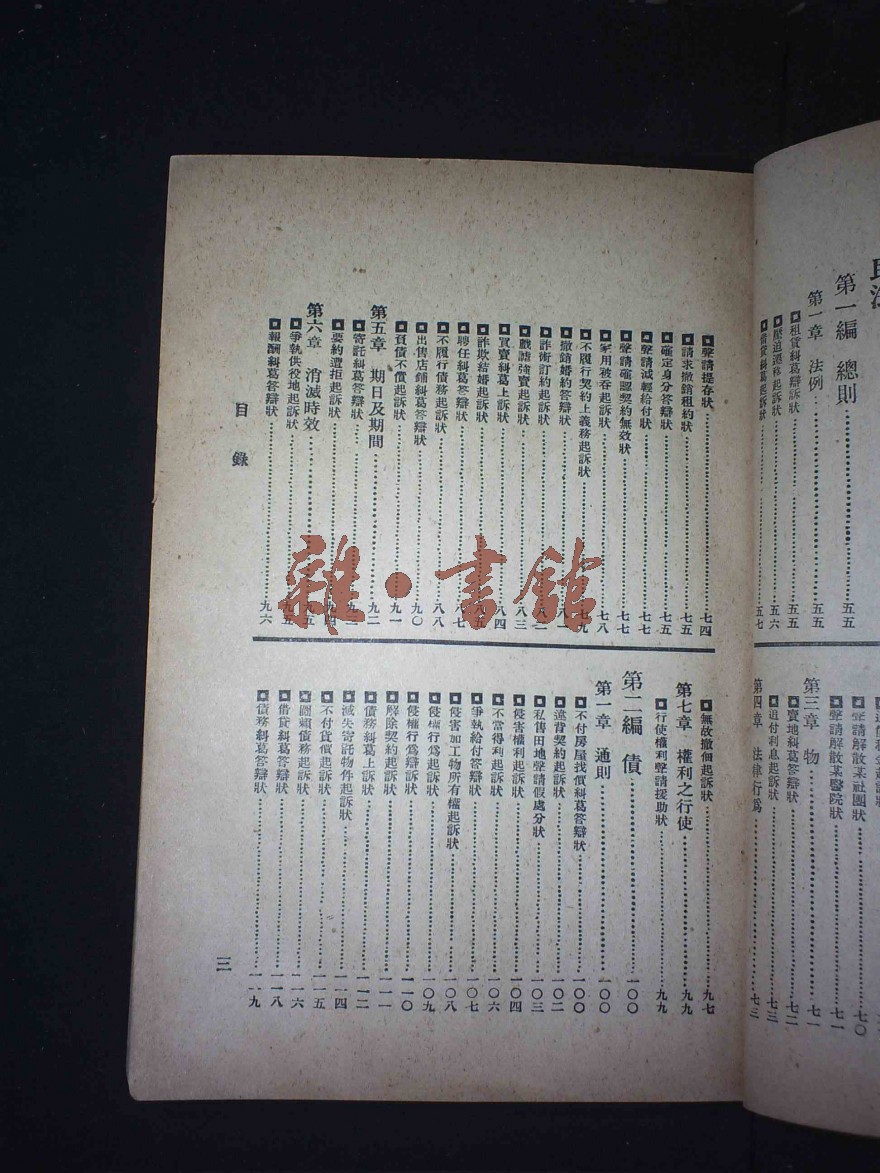 第一編 總則 五五
第一章 法例 五五
租賃糾葛答辯狀 五五
壓迫遷移起訴狀 五六
借貸糾葛起訴狀 五七
聲請解散某社團狀 七〇
聲請解散某醫院狀 七一
第三章 物 七一
賣地糾葛答辯狀 七二
追付利息起訴狀 七三
第四章 法律行爲 七三
聲請提存狀 七四
請求撤銷租約狀 七五
確定身分答辯狀 七五
聲請減輕給付狀 七七
聲請確認契約無效狀 七七
家用被吞起訴狀 七八
不履行契約上義務起訴狀 七九
撤銷婚約答辯狀
詐術訂約起訴狀
戲謔強賣起訴狀 八三
買賣糾葛上訴狀 八四
詐欺結婚起訴狀 八五
聘任糾葛答辯狀 八七
不履行債務起訴狀 八八
出售店鋪糾葛答辯狀 九〇
負債不償起訴狀 九一
第五章 期日及期間 九二
寄託糾葛答辯狀
要約遭拒起訴狀 九四
第六章 消滅時效 九五
爭執供役地起訴狀 九五
報酬糾葛答辯狀 九六
無故撤佃起訴狀 九七
第七章 權利之行使 九九
行使權利聲請援助狀 九九
第二編 債 一〇〇
第一章 通則 一〇〇
不付房屋找價糾葛答辯狀 一〇〇
違背契約起訴狀 一〇二
私售田地聲請假處分狀 一〇三
侵害權利起訴狀 一〇四
不當得利起訴狀 一〇六
爭執給付答辯狀 一〇七
侵害加工物所有權起訴狀 一〇八
侵權行爲起訴狀 一〇九
侵權行爲辯訴狀 一一〇
解除契約起訴狀 一一一
債務糾葛上訴狀 一一二
滅失寄託物件起訴狀 一一四
不付貨價起訴狀 一一五
圖賴債務起訴狀 一一六
借貸糾葛答辯狀 一一八
債務糾葛答辯狀 一一九
目錄
三
雜·書館